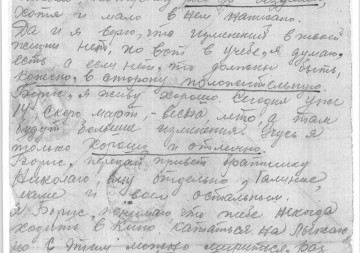 хотя и мало в нем написано.
Да и я верю, что изменений в твоей
жизни нет, но вот в учебе, я думаю,
есть а если нет, то должны быть,
конечно, в сторону положительную
Борис, я живу хорошо. Сегодня уже
14 Скоро март, - весна, лето, а там
будут большие изменения. Учусь я
только хорошо и отлично.
Борис, передай привет братишке
Николаю, ему отдельно, Галинке,
маме и всем остальным.
Борис, понимаю что тебе некогда
ходить в кино. Кататься на лыжах
но с этим можно мириться, раз